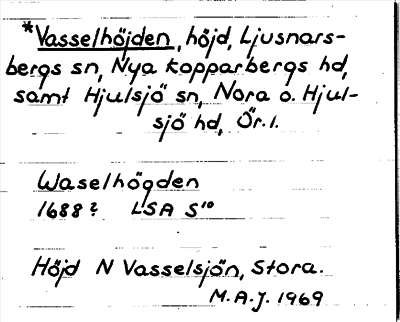 *Vasselhöjden, höjd, Ljusnars-
bergs sn, Nya Kopparbergs hd,
samt Hjulsjö sn, Nora o. Hjul-
sjö hd, Ör.l.
Waselhögden
1688? LSA S¹⁰
Höjd N Vasselsjön, Stora.
M.A.J. 1969